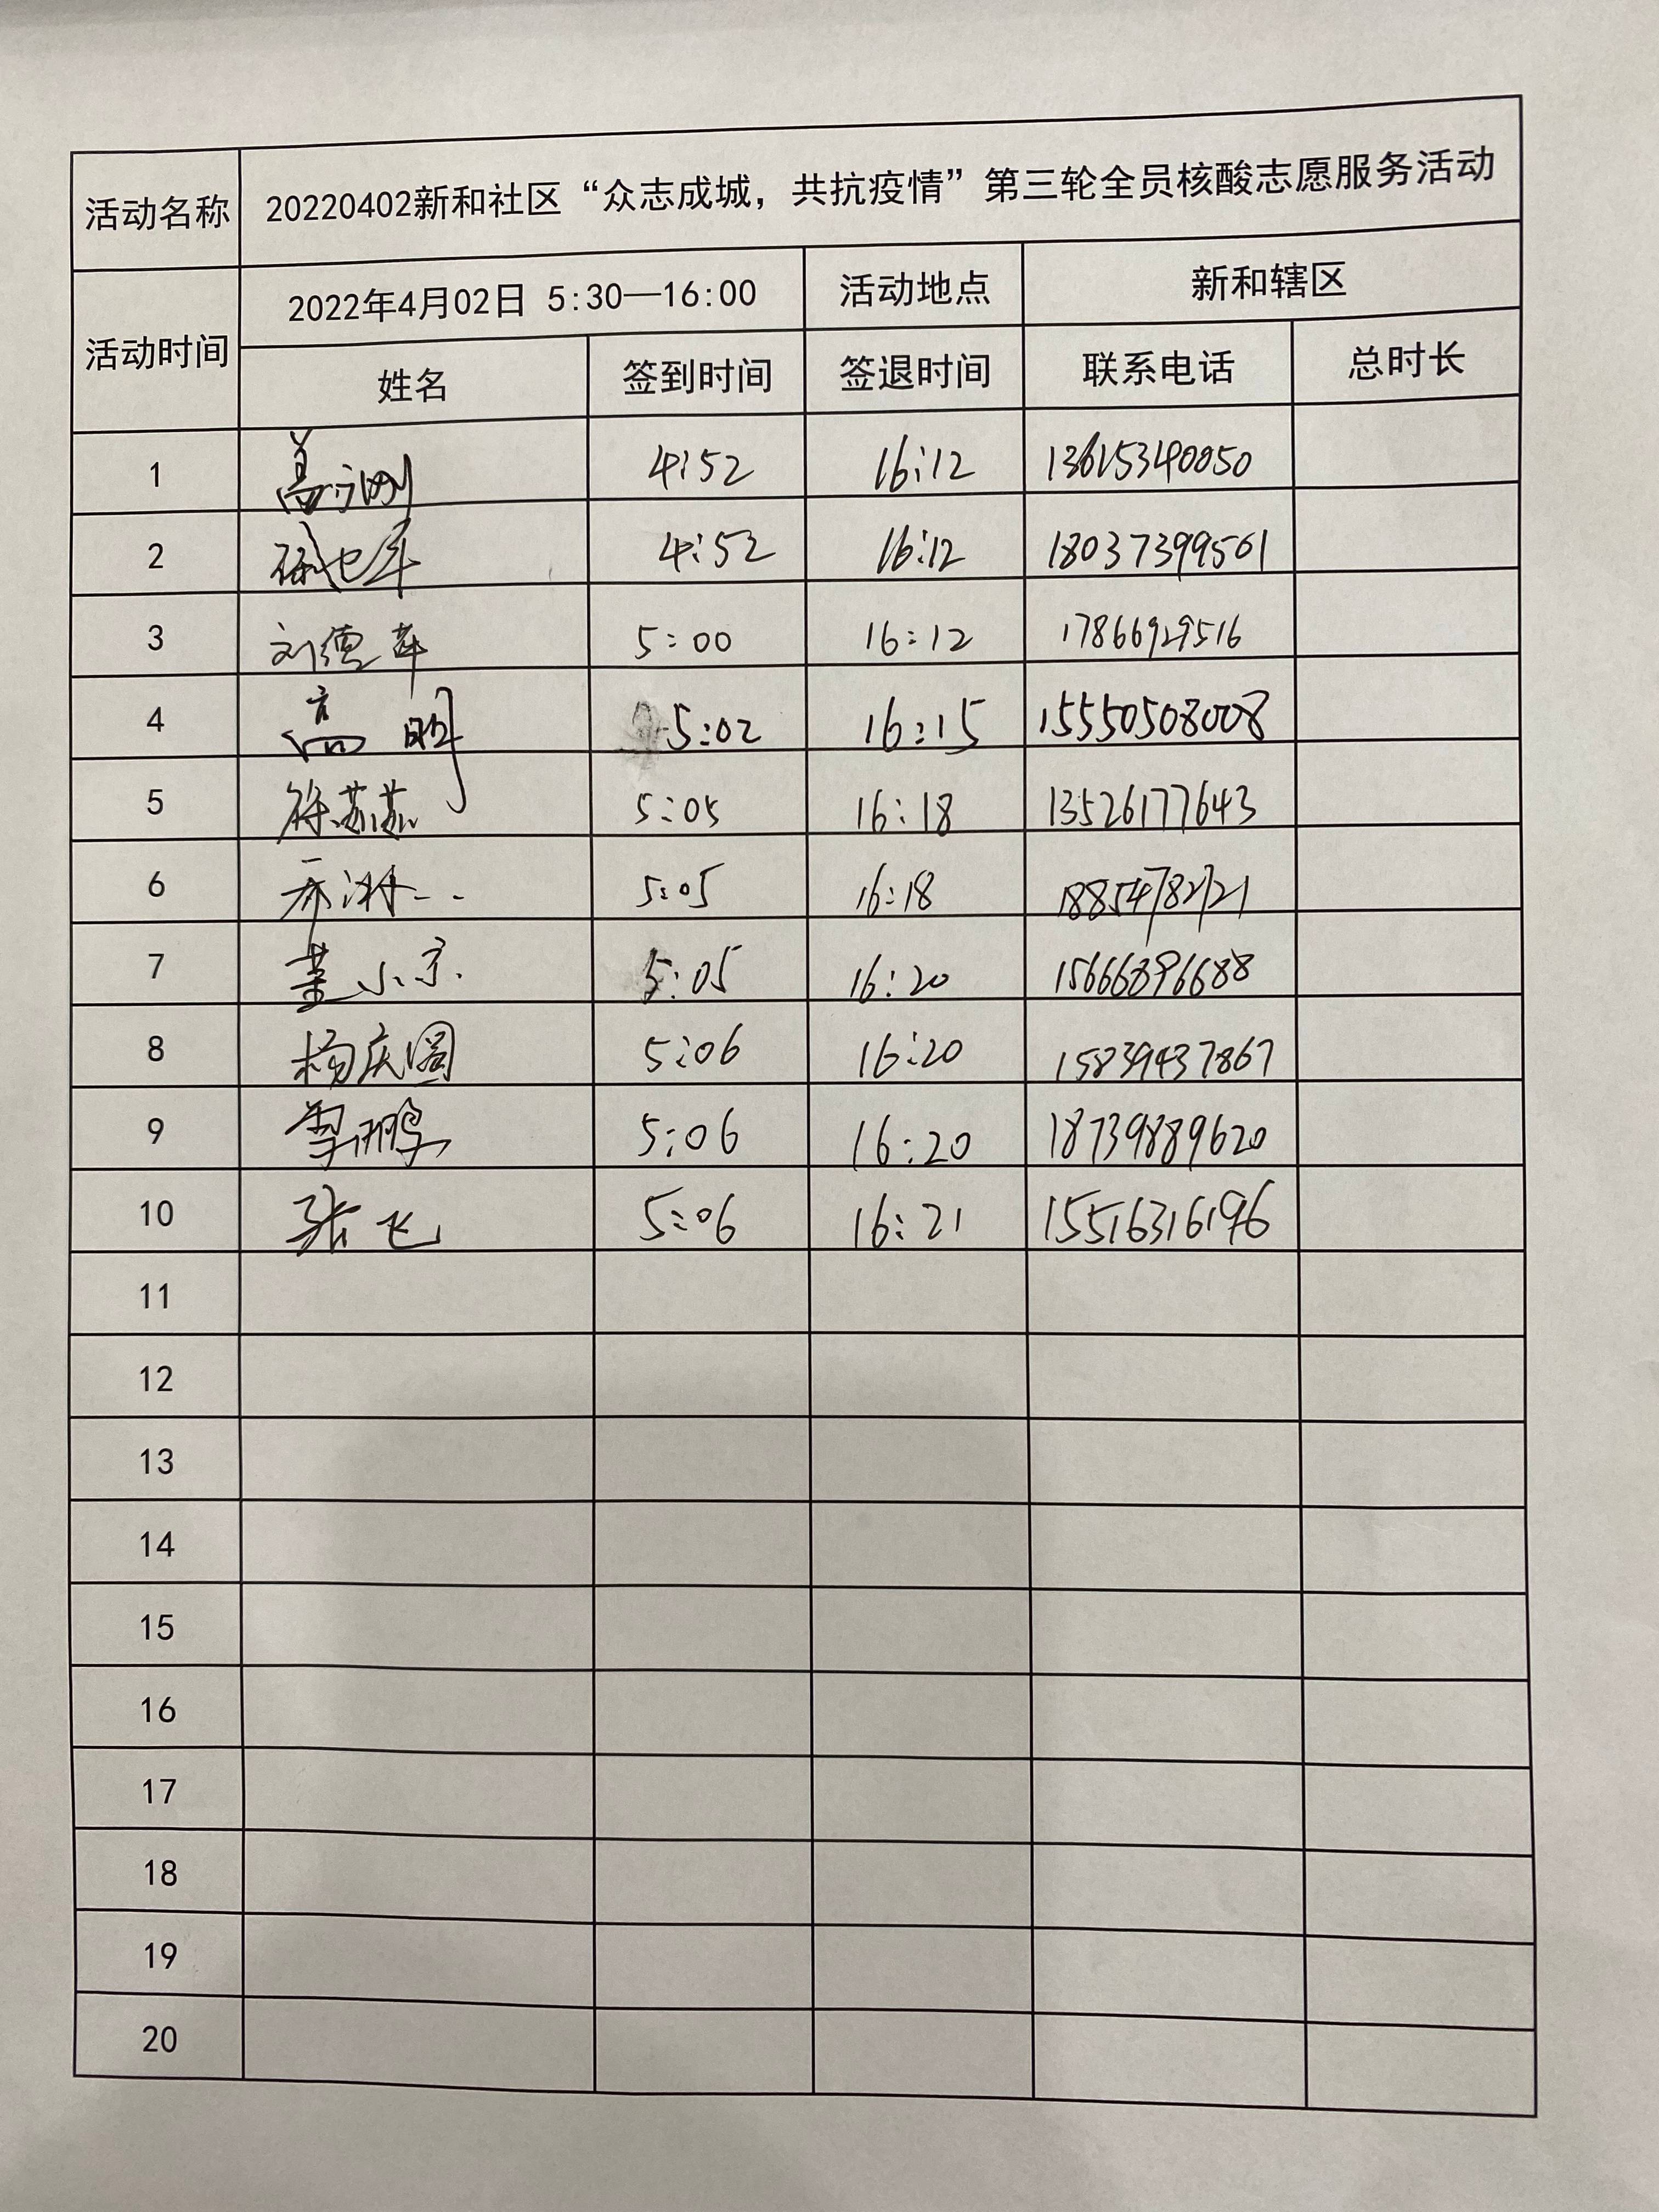 活动名称 20220402新和社区“众志成城，共抗疫情”第三轮全员核酸志愿服务活动
活动时间 2022年4月02日 5:30—16:00 活动地点 新和辖区
姓名 签到时间 签退时间 联系电话 总时长
1 4:52 16:12 13615340050
2 4:52 16:12 18037399501
3 刘德华 5:00 16:12 17866929516
4 高明 5:02 16:15 15550508008
5 徐苏苏 5:05 16:18 13526177643
6 5:05 16:18 18854782721
7 董小京 5:05 16:20 15666896688
8 杨庆圆 5:06 16:20 15839437867
9 李鹏 5:06 16:20 18739889620
10 张飞 5:06 16:21 15516316196
11
12
13
14
15
16
17
18
19
20